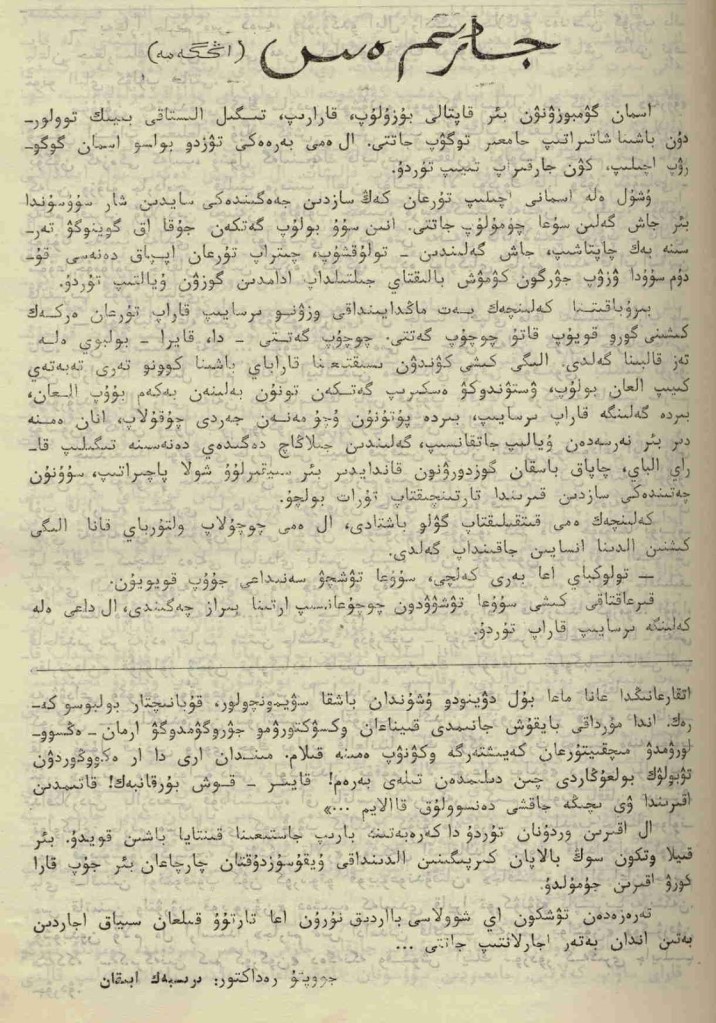 جارىم ەس (اڭگەمە)
اسمان گۉمبوزۉنۉن بئر قاپتالى بۇزۇلۇپ، قارارىپ، تىگىل الىستاقى بىيىك توولور-
دۇن باشىنا شاتىراتىپ جامعىر توگۉپ جاتتى. ال ەمى بەرەەكى تۉزدو بولسو اسمان گوگو-
رۉپ اچىلىپ، كۉن جارقىراپ تىيىپ تۇردۇ.
ۇشۇل ەلە اسمانى اچىلىپ تۇرعان كەڭ سازدىن جەەگىندەكى سايدىن شار سۇۇسۇندا
بئر جاش گەلىن سۇعا چۇمۇلۇپ جاتتى. انىن سۇۇ بولۇپ گەتكەن جۇقا اق گوينوگۉ تەر-
سىنە بەك چاپتاشىپ، جاش گەلىندىن - تولۇقشۇپ، چىتىراپ تۇرعان اپپاق دەنەسى قۇ-
دۇم سۇۇدا ۉزۉپ جۉرگون كۉمۉش بالىقتاي جىلتىلداپ ادامدىن گوزۉن ۇيالتىپ تۇردۇ.
بىروباقىتتا كەلىنچەك بەت ماڭدايىنداقى وزۉنو ىرسايىپ قاراپ تۇرعان ەركەك
كىشىنى گورو قويۇپ قاتۇۇ چوچۇپ گەتتى. چوچۇپ گەتتى - دا، قايرا - بولبوي ەلە
تەز قالبىنا گەلدى. الىگى كىشى كۉندۉن ىسىقتىعىنا قاراباي باشىنا كوونو تەرى تەبەتەي
كىيىپ العان بولۇپ، ۉستۉندوكۉ ەسكىرىپ گەتكەن تونۇن بەلىنەن بەكەم بۇۇپ العان،
بىردە گەلىنگە قاراپ ىرسايىپ، بىردە پۇتۇنۇن ۇچۇ مەنەن جەردى چۇقۇلاپ، انان ەمنە
دىر بئر نەرسەدەن ۇيالىپ جاتقانسىپ، گەلىندىن جىلاڭاچ دەگىدەي دەنەسىنە تىگىلىپ قا-
راي الباي، چاپاق باسقان گوزدورۉنون قاندايدىر بئر سىيقىرلۇۇ شولا پاچىراتىپ، سۇۇنۇن
جەتىندەكى سازدىن قىرىندا تارتىنچىقتاپ تۇرات بولچۇ.
كەلىنچەك ەمى قىتقىلىقتاپ گۉلو باشتادى، ال ەمى چوچۇلاپ ولتۇرباي قانا الىگى
كىشىنىن الدىنا انسايىن جاقىنداپ گەلدى.
— تولوكباي اعا بەرى كەلچى، سۇۇعا تۉشچۉ سەنىداعى جۇۇپ قويويۇن.
قىرعاقتاقى كىشى سۇۇعا تۉشۉۉدون چوچۇعانسىپ ارتىنا بىراز چەگىندى، ال داعى ەلە
كەلىنگە ىرسايىپ قاراپ تۇردۇ.
اتقارعانىڭدا عانا ماعا بۇل دۉينودو ۇشۇندان باشقا سۉيۉنۉچولور، قۇبانىچتار بولبوسو كە-
رەك. اندا مۇرداقى بايقۇش جانىمدى قىيناعان وكسۉكتورۉمو جۉروگۉمدوگۉ ارمان - ەڭسوو-
لورۉمدۉ مىچقىيتۇرعان كەيىشتەرگە وكۉنۉپ ەمنە قىلام. مىندان ارى دا ار ەكووگوردۉن
تۉبولۉك بولعۇڭاردى چىن دىلىمدەن تىلەي بەرەم! قايشىر - قوش بۇرقانبەك! قاتىمدىن
اقىرىندا ۉي ىچىگە جاقشى دەنسوولۇق قاالايم ...»
ال اقىرىن وردۇنان تۇردۇ دا كەرەبەتىنە بارىپ جاستىعىنا قىنتايا باشىن قويدۇ. بئر
قىيلا وتكون سوڭ بالاپان كىرپىگىنىن الدىنداقى ۇيقۇسۇزدۇقتان چارچاعان بئر جۇپ قارا
كورۉ اقىرىن جۇمۇلدۇ.
تەرەزەدەن تۉشكون اي شوولاسى بااردىق نۇرۇن اعا تارتۇۇ قىلعان سىياق اجاردىن
بەتىن اندان بەتەر اجارلانتىپ جاتتى ...
جووپتۇ رەداكتور: ىرىسبەك ابىقان